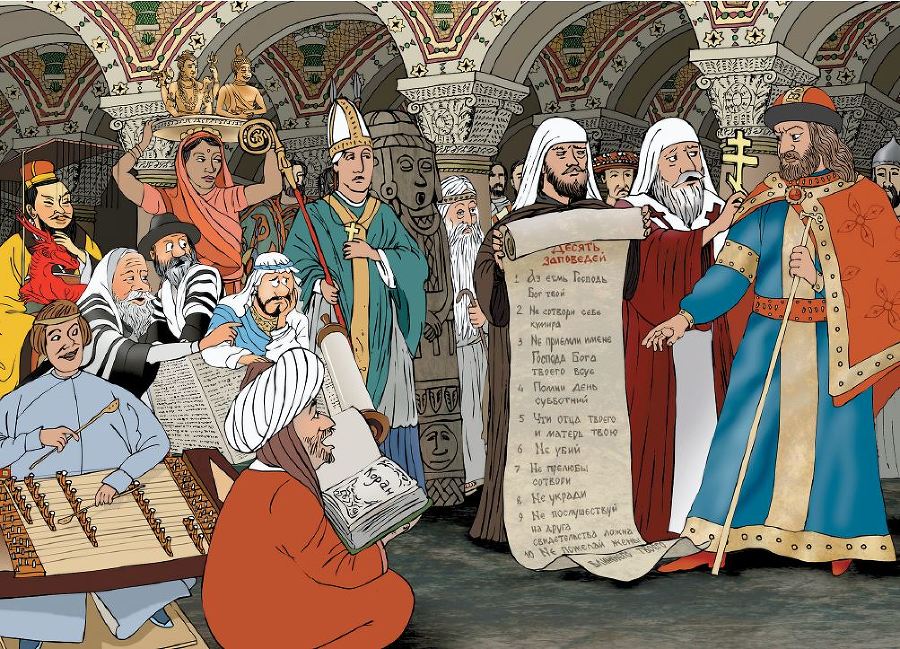 Десять
заповедей
1 Аз есмь Господь
Бог твой
2 Не сотвори себе
кумира
3 Не приемли имене
Господа Бога
твоего всуе
4 Помни день
субботний
5 Чти отца твоего
и матерь твою
6 Не убий
7 Не прелюбы
сотвори
8 Не укради
9 Не послушествуй
на друга
свидетельства ложна
10 Не пожелай жены
ближнего твоего
Коран